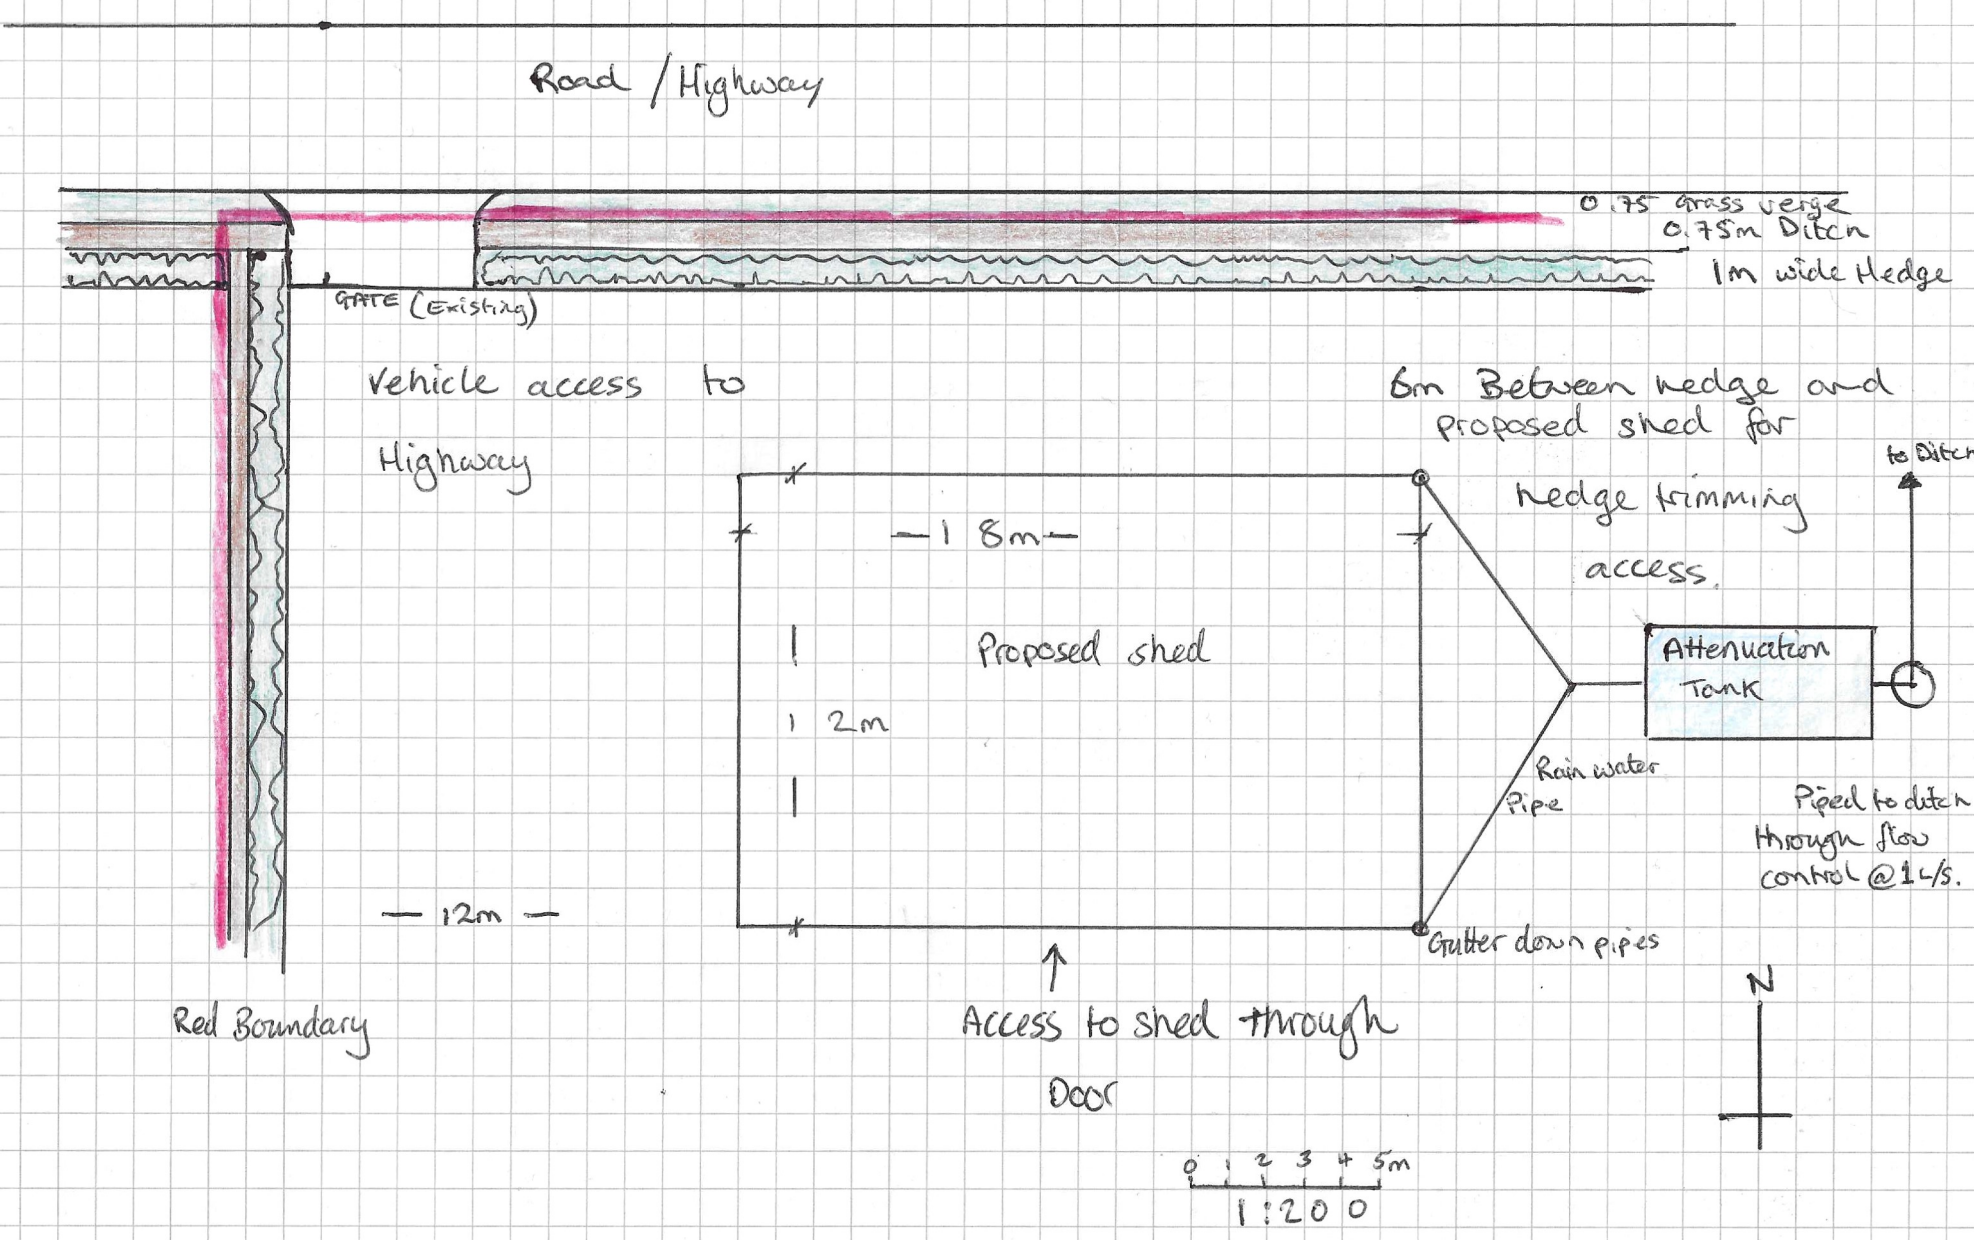 Road / Highway
0.75 Grass verge
0.75m Ditch
1m wide Hedge
GATE (Existing)
Vehicle access to
Highway
6m Between hedge and
proposed shed for
hedge trimming
access.
to Ditch
— 18m —
Proposed shed
12m
Attenuation
Tank
Rain water
Pipe
Piped to ditch
through flow
control @ 1L/s.
— 12m —
Gutter down pipes
Red Boundary
Access to shed through
Door
N
0 1 2 3 4 5m
1:200